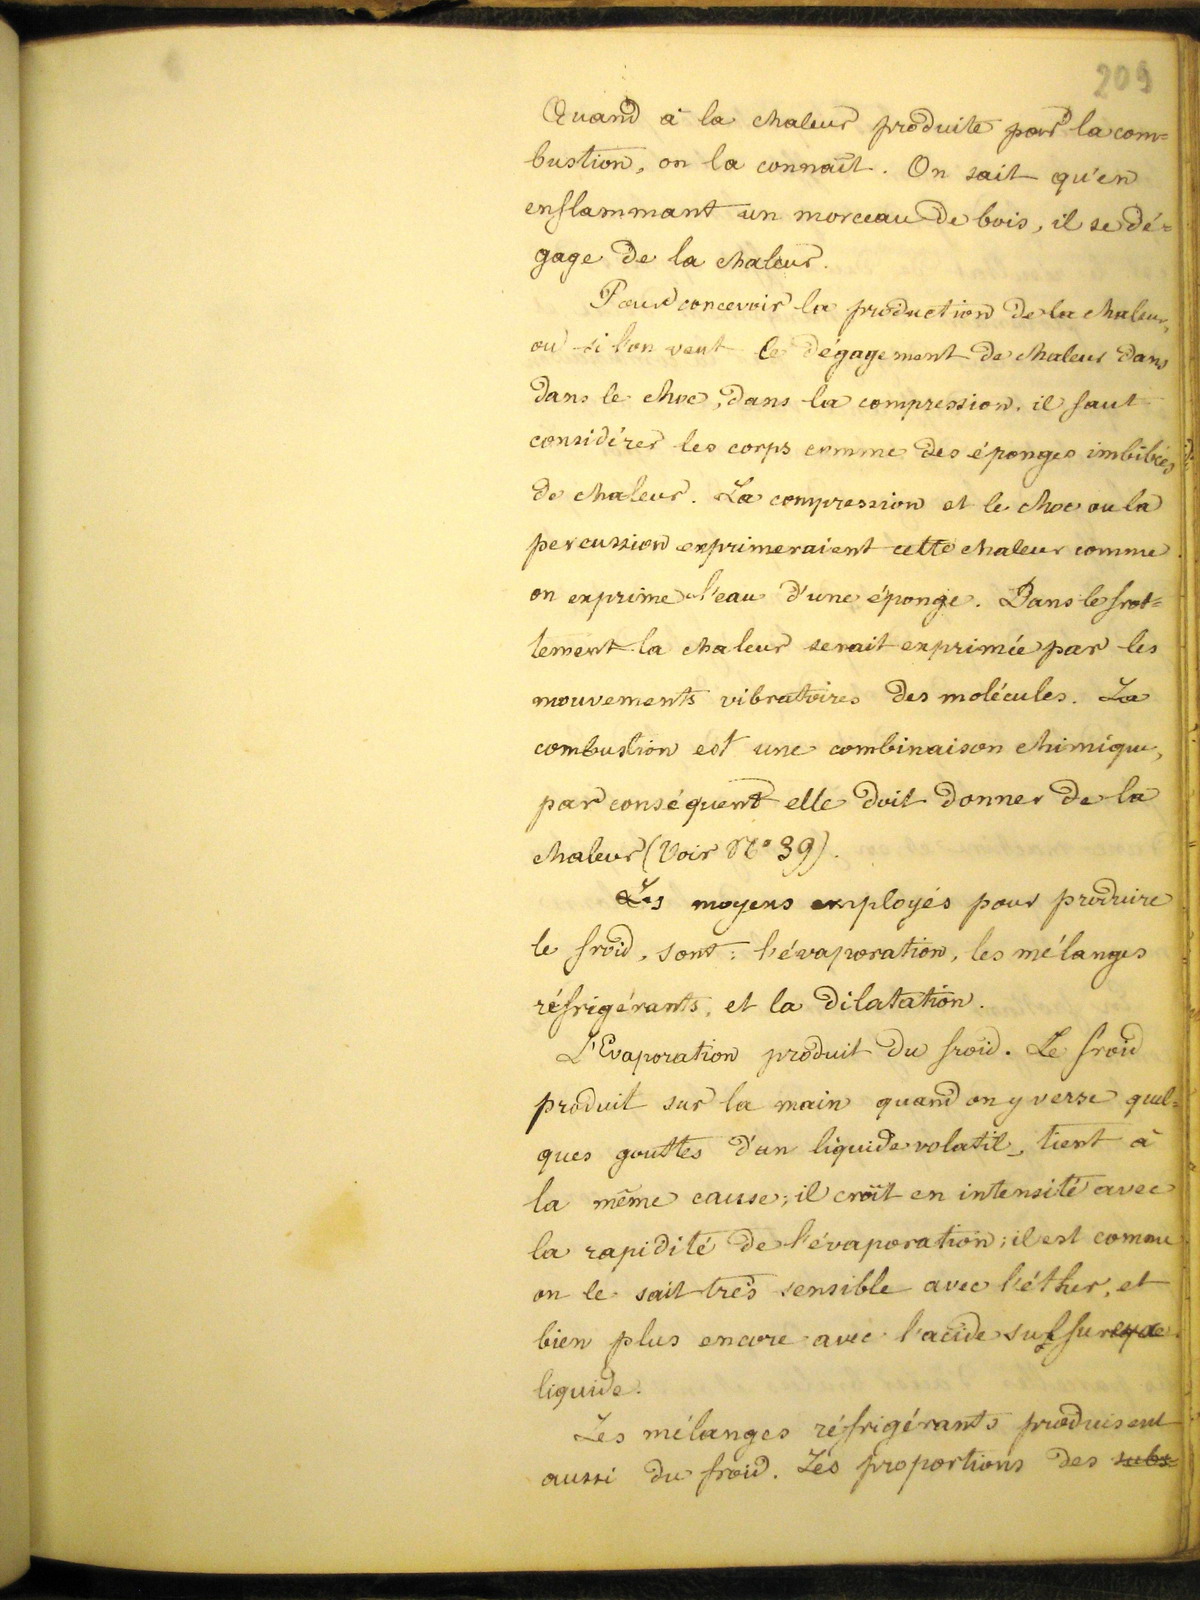 209
Quand à la chaleur produite par la com=
bustion, on la connaît. On sait qu'en
enflammant un morceau de bois, il se dé=
gage de la chaleur.
Pour concevoir la production de la chaleur,
ou si l'on veut le dégagement de chaleur dans
dans le choc, dans la compression, il faut
considérer les corps comme des éponges imbibées
de chaleur. La compression et le choc ou la
percussion exprimeraient cette chaleur comme
on exprime l'eau d'une éponge. Dans le frot=
tement la chaleur serait exprimée par les
mouvements vibratoires des molécules. La
combustion est une combinaison chimique,
par conséquent elle doit donner de la
chaleur (Voir Nº 39).
Les moyens employés pour produire
le froid, sont: l'évaporation, les mélanges
réfrigérants, et la dilatation.
L'Evaporation produit du froid. Le froid
produit sur la main quand on y verse quel=
ques gouttes d'un liquide volatil, tient à
la même cause; il croît en intensité avec
la rapidité de l'évaporation; il est comme
on le sait très sensible avec l'éther, et
bien plus encore avec l'acide
liquide.
Les mélanges réfrigérants produisent
aussi du froid. Les proportions des subs=